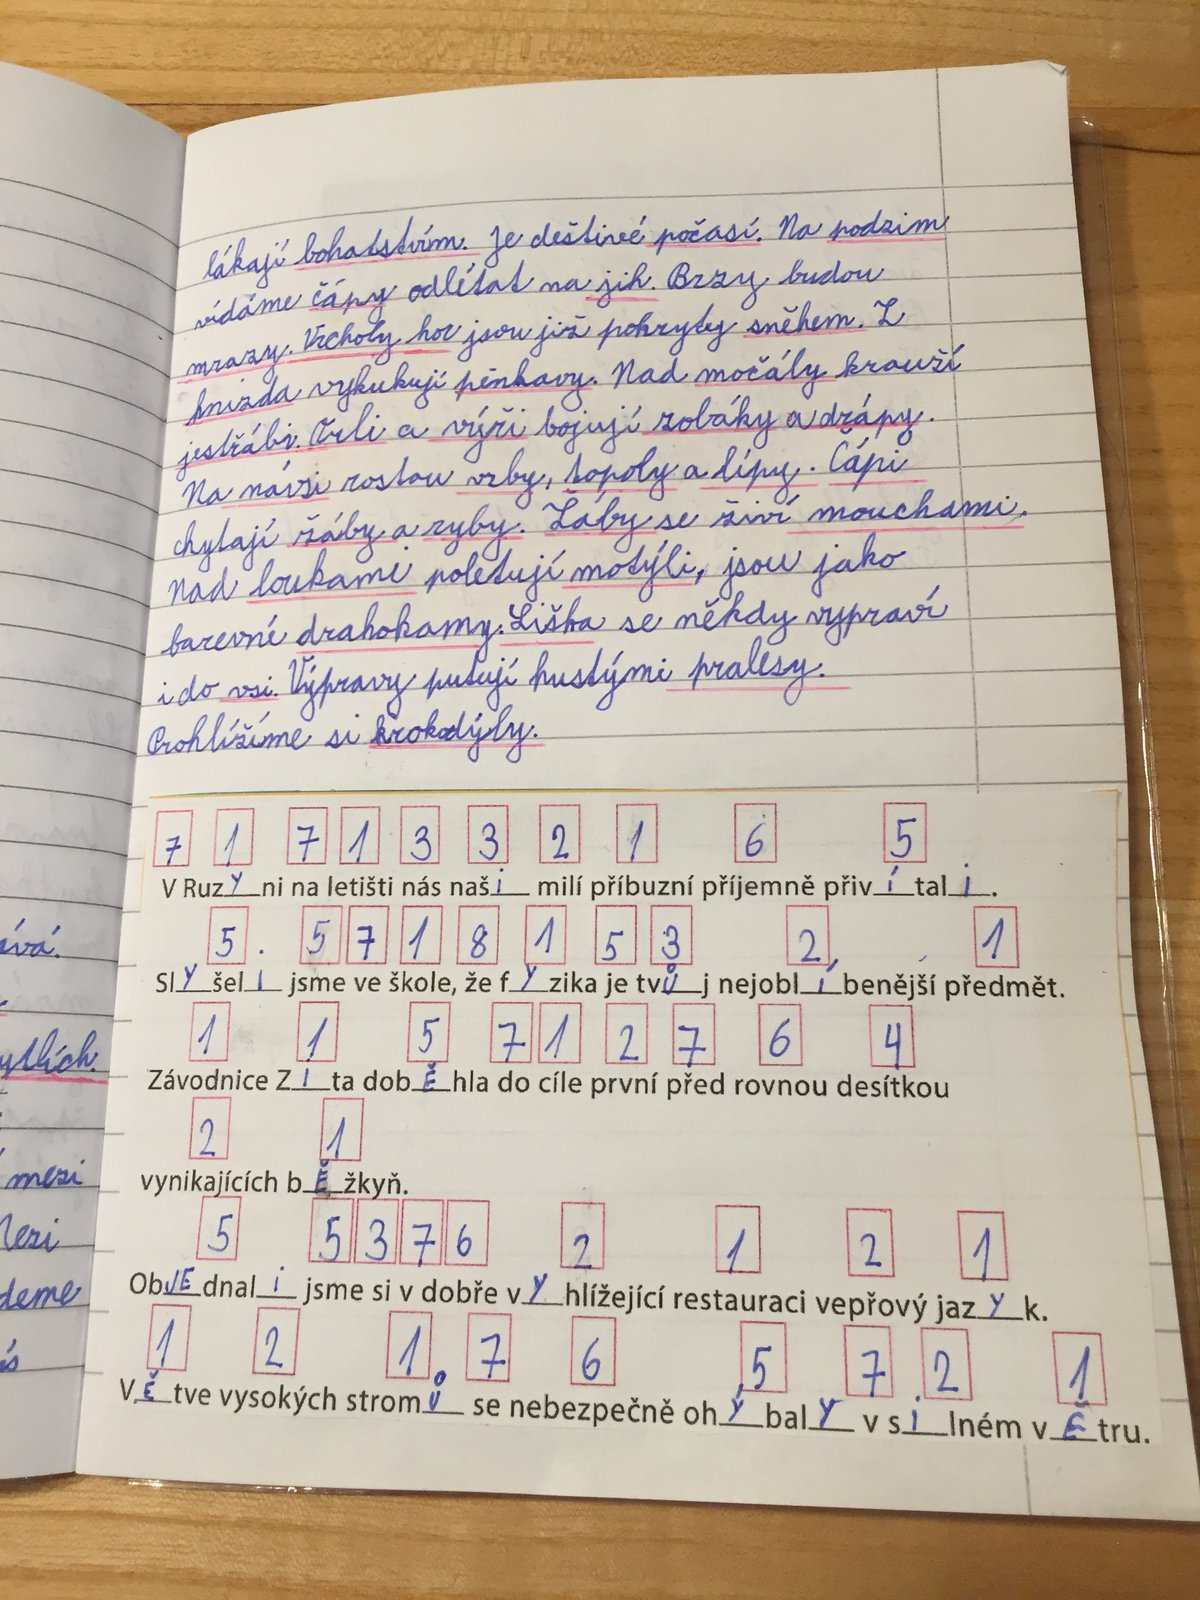 lákají bohatstvím. Je deštivé počasí. Na podzim
vídáme čápy odlétat na jih. Brzy budou
mrazy. Vrcholy hor jsou již pokryty sněhem. Z
hnízda vykukují pěnkavy. Nad močály krouží
jestřábi. Orli a výři bojují zobáky a drápy.
Na návsi rostou vrby, topoly a lípy. Čápi
chytají žáby a ryby. Žáby se živí mouchami.
Nad loukami poletují motýli, jsou jako
barevné drahokamy. Liška se někdy vypraví
i do vsi. Výpravy putují hustými pralesy.
Prohlížíme si krokodýly.
7 1 7 1 3 3 2 1 6 5
V Ruzyni na letišti nás naši milí příbuzní příjemně přivítali.
5. 5 7 1 8 1 5 3 2 1
Slyšeli jsme ve škole, že fyzika je tvůj nejoblíbenější předmět.
1 1 5 7 1 2 7 6 4
Závodnice Zita doběhla do cíle první před rovnou desítkou
2 1
vynikajících běžkyň.
5 5 3 7 6 2 1 2 1
Objednali jsme si v dobře vyhlížející restauraci vepřový jazyk.
1 2 1 7 6 5 7 2 1
Větve vysokých stromů se nebezpečně ohýbaly v silném větru.
ává.
ytlích.
mezi
Mezi
deme